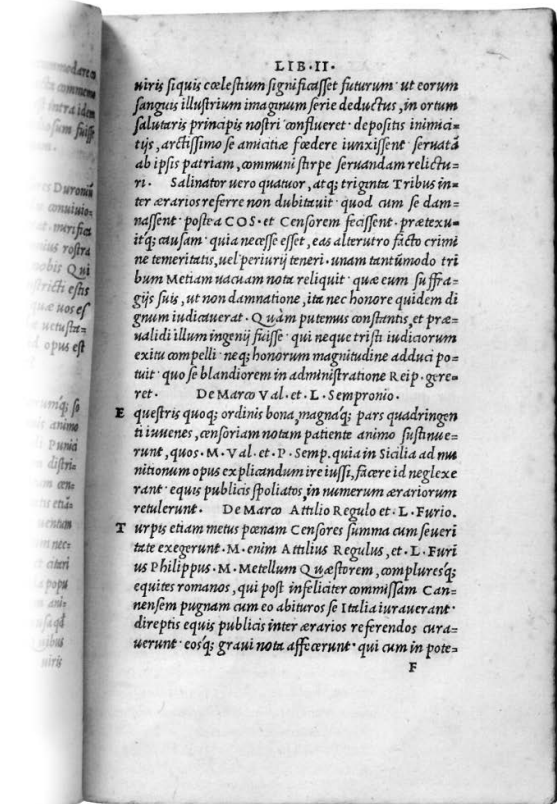 LIB·II·
uiris siquis cœlestium significasset futurum· ut eorum
sanguis illustrium imaginum serie deductus, in ortum
salutaris principis nostri conflueret· depositis inimici=
tijs, arctissimo se amicitiæ fœdere iunxissent· seruatã
ab ipsis patriam, communi stirpe seruandam relictu=
ri· Salinator uero quatuor, atq; triginta Tribus in=
ter ærarios referre non dubitauit· quod cum se dam=
nassent· postea COS· et Censorem fecissent· prætexu=
itq; causam· quia necesse esset, eas alterutro facto crimi
ne temeritatis, uel periurij teneri· unam tantũmodo tri
bum Metiam uacuam nota reliquit· quæ eum suffra=
gijs suis, ut non damnatione, ita nec honore quidem di
gnum iudicauerat· Quàm putemus constantis, et præ=
ualidi illum ingenij fuisse· qui neque tristi iudiciorum
exitu compelli· neq; honorum magnitudine adduci po=
tuit· quo se blandiorem in administratione Reip· gere=
ret· De Marco Val·et·L·Sempronio·
E questris quoq; ordinis bona, magnaq; pars quadringen
ti iuuenes, censoriam notam patiente animo sustinue=
runt, quos·M·Val·et·P·Semp. quia in Sicilia ad mu
nitionum opus explicandum ire iussi, facere id neglexe
rant· equis publicis spoliatos, in numerum ærariorum
retulerunt· De Marco Attilio Regulo et·L·Furio.
T urpis etiam metus pœnam Censores summa cum seueri
tate exegerunt·M·enim Attilius Regulus, et·L·Furi
us Philippus·M·Metellum Quæstorem, compluresq;
equites romanos, qui post infeliciter commissam Can=
nensem pugnam cum eo abituros se Italia iurauerant·
direptis equis publicis inter ærarios referendos cura=
uerunt· eosq; graui nota affecerunt· qui cum in pote=
F